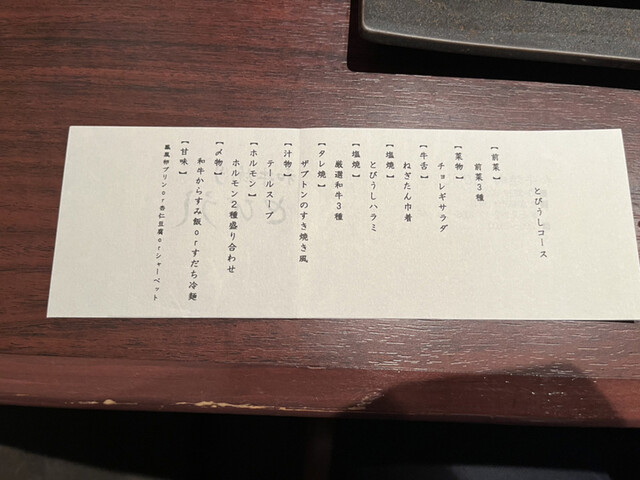 とびうしコース
【前菜】
前菜3種
【菜物】
チョレギサラダ
【牛舌】
ねぎたん巾着
【塩焼】
とびうしハラミ
【塩焼】
厳選和牛3種
【タレ焼】
ザブトンのすき焼き風
【汁物】
テールスープ
【ホルモン】
ホルモン2種盛り合わせ
【〆物】
和牛からすみ飯orすだち冷麺
【甘味】
鳳凰卵プリンor杏仁豆腐orシャーベット